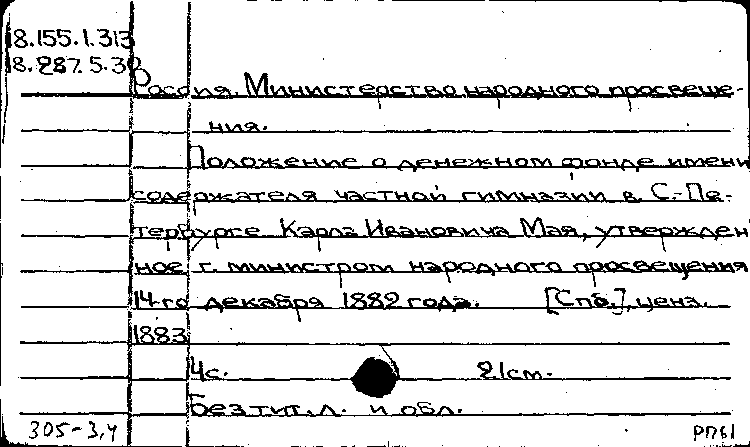 18.155.1.313
18.287.5.30
Россия. Министерство народного просвеще-
ния.
Положение о денежном фонде имени
содержателя частной гимназии в С.-Пе-
тербурге Карла Ивановича Мая, утвержден
ное г. министром народного просвещения
14-го декабря 1882 года. [Спб.], ценз.
1883
4с. 21см.
Без тит. л. и обл.
305-3,4 РП61